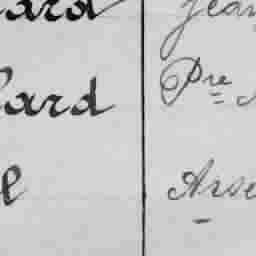 ard Jean
ard Pre
l Arse